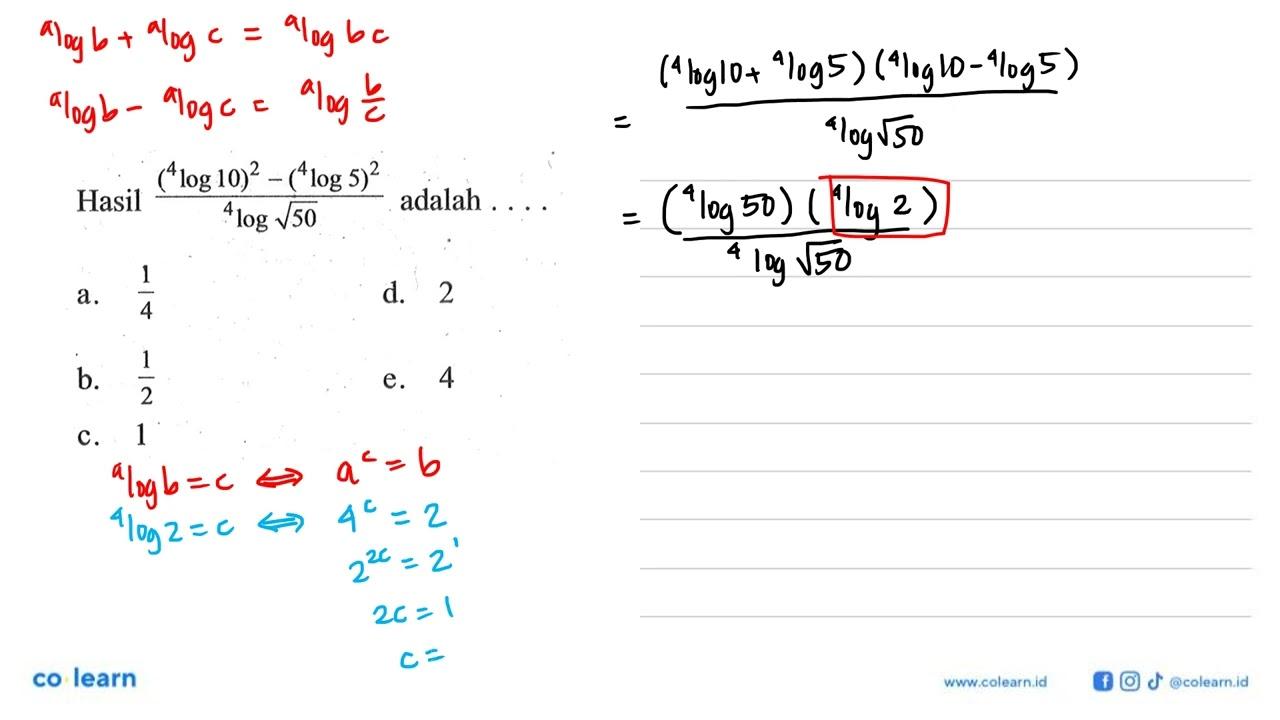 ᵃlog b + ᵃlog c = ᵃlog bc
ᵃlog b - ᵃlog c = ᵃlog b/c
Hasil ((⁴log 10)² - (⁴log 5)²)/(⁴log √50) adalah . . . .
a. 1/4
d. 2
b. 1/2
e. 4
c. 1
ᵃlog b = c ⇔ aᶜ = b
⁴log 2 = c ⇔ 4ᶜ = 2
2²ᶜ = 2¹
2c = 1
c =
= ((⁴log 10 + ⁴log 5) (⁴log 10 - ⁴log 5))/(⁴log √50)
= ((⁴log 50) (⁴log 2))/(⁴log √50)
co·learn
www.colearn.id
@colearn.id